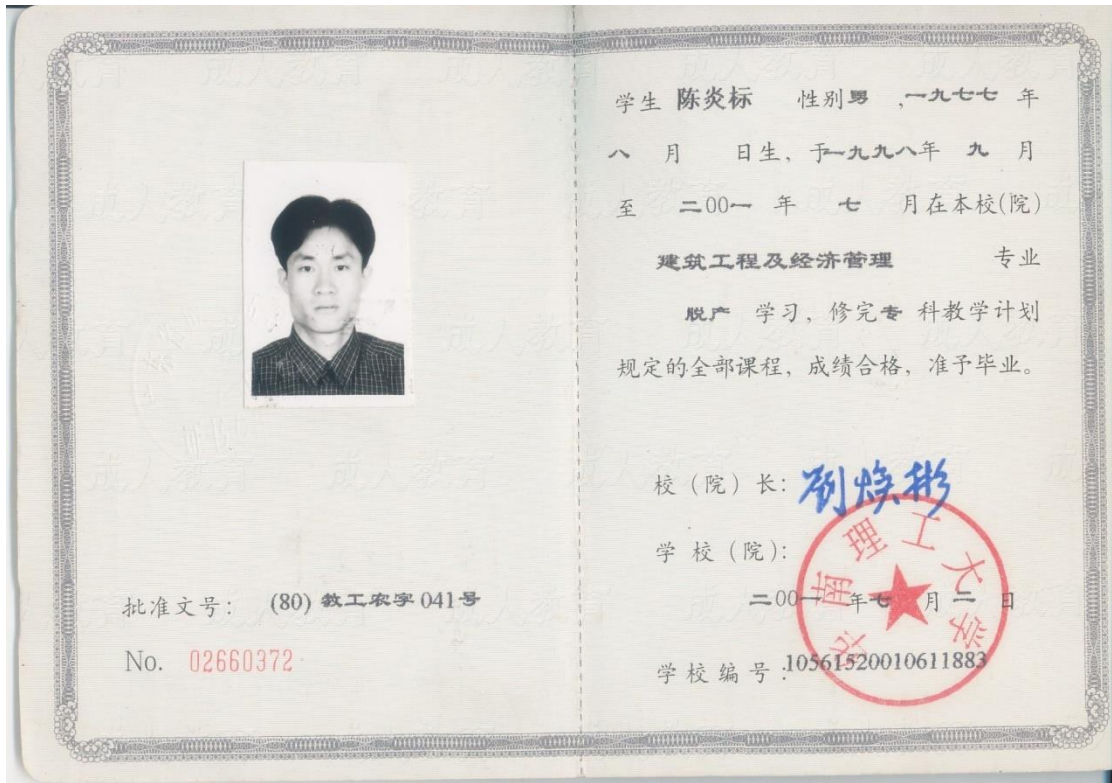 批准文号: (80) 教工农字 041号
No. 02660372
学生 陈炎标 性别男 ,一九七七 年
八 月 日生, 于一九九八年 九 月
至 二00一 年 七 月在本校(院)
建筑工程及经济管理 专业
脱产 学习, 修完专 科教学计划
规定的全部课程, 成绩合格, 准予毕业。
校 (院) 长: 刘焕彬
学 校 (院):
华南理工大学
二00一 年七 月 一 日
学 校 编 号 :10561520010611883
成人教育